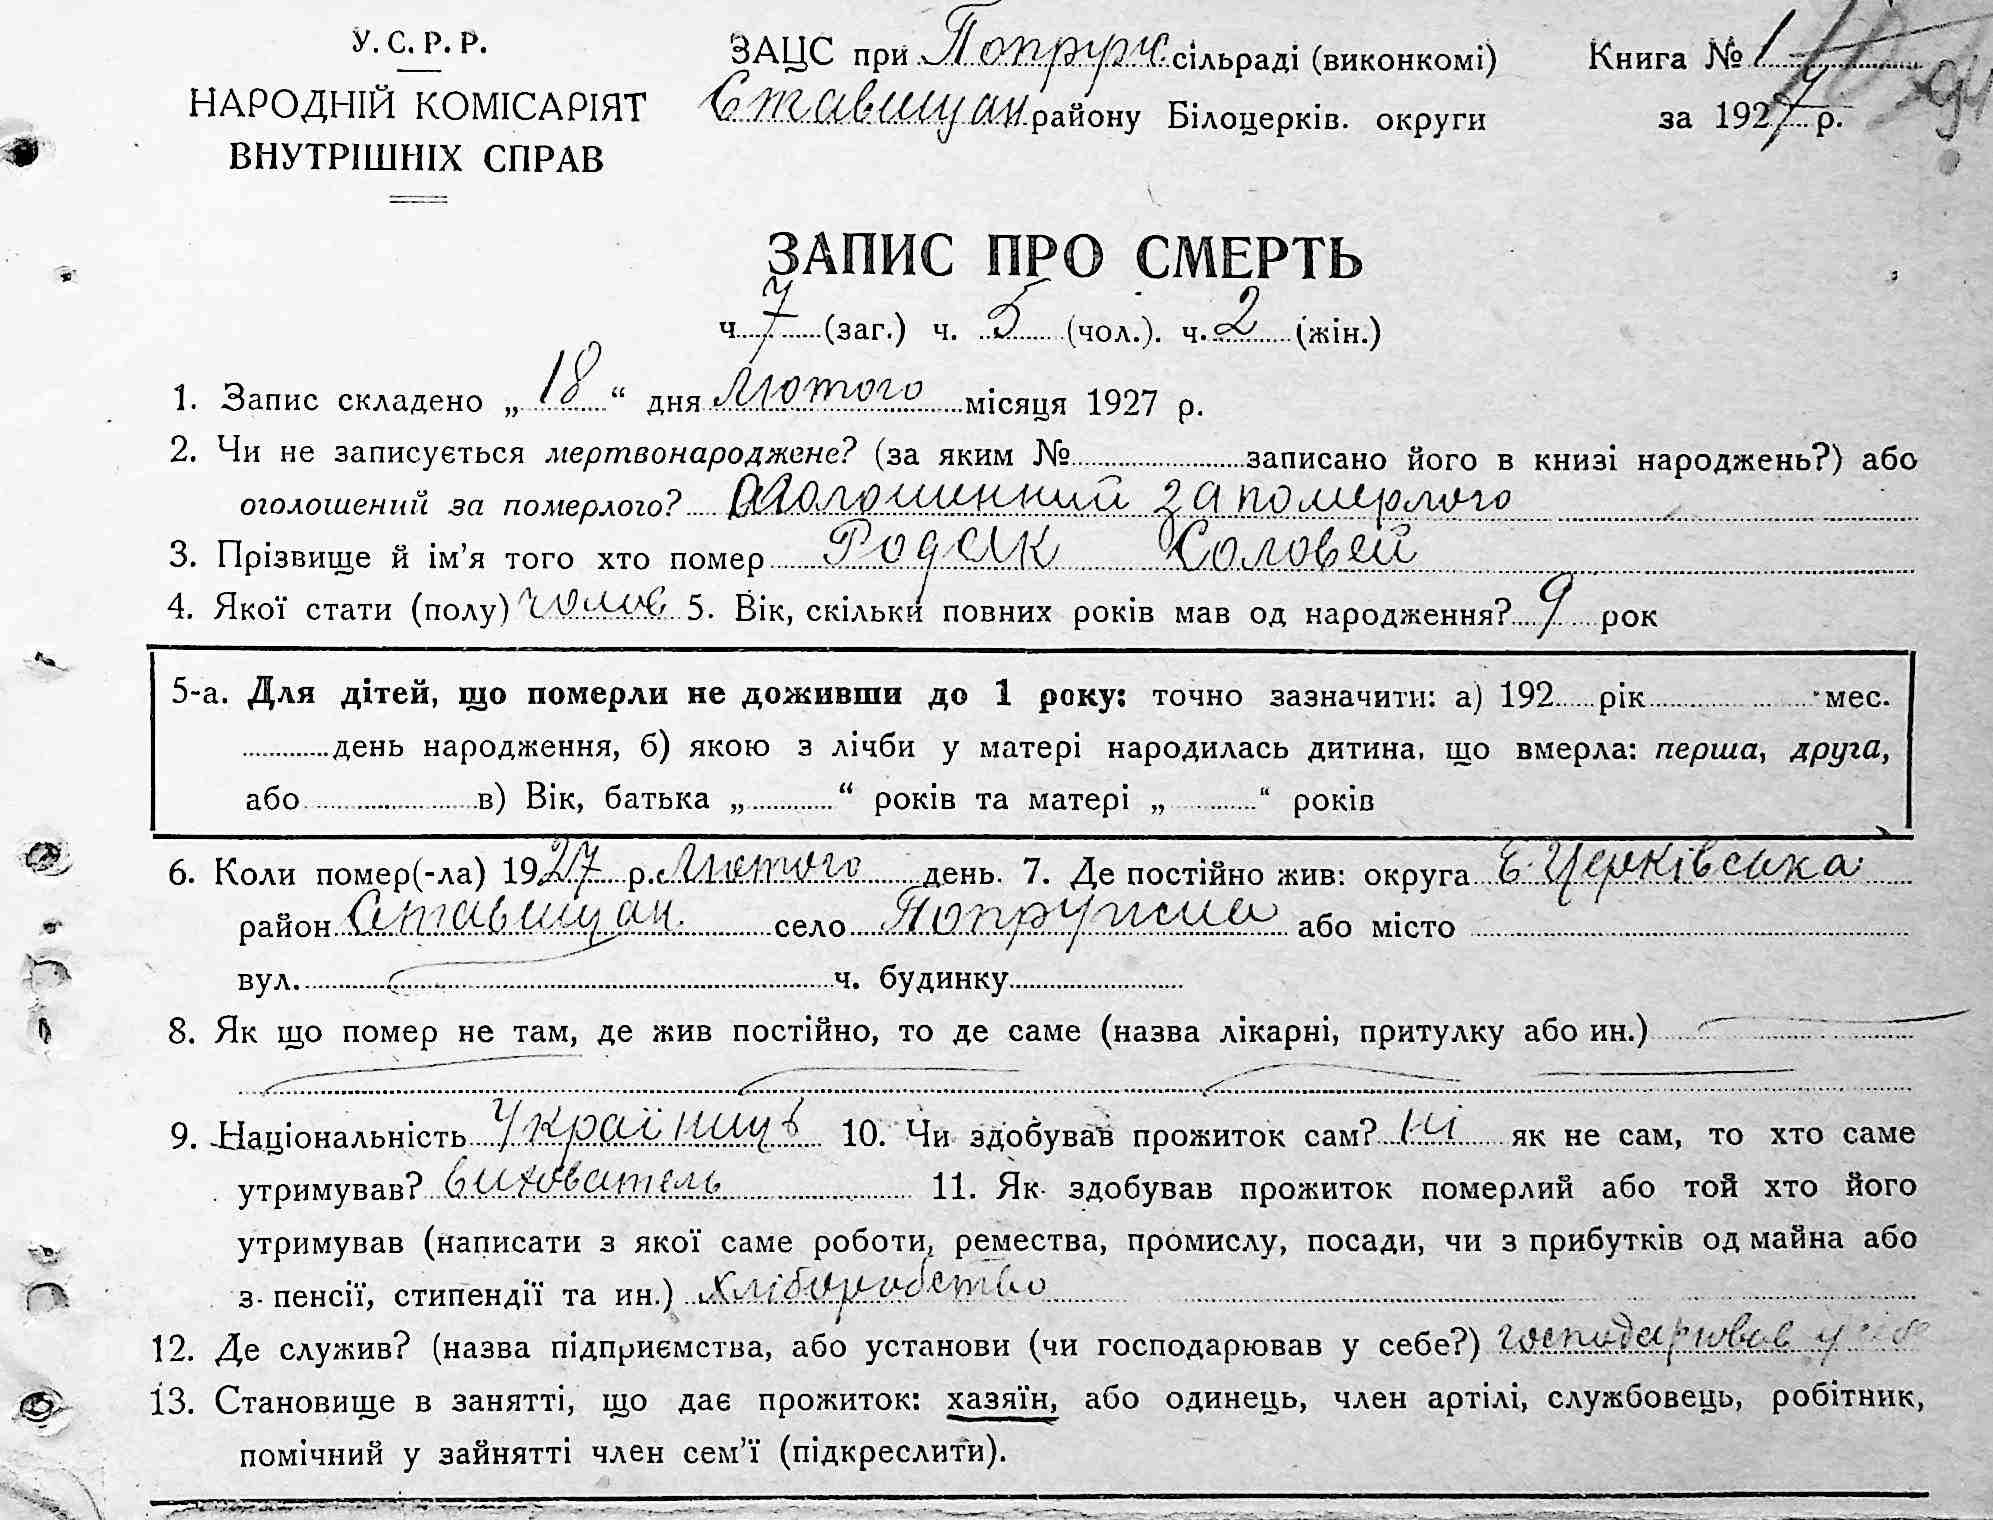 У. С. Р. Р.
НАРОДНІЙ КОМІСАРІЯТ
ВНУТРІШНІХ СПРАВ
ЗАЦС при Попруж. сільраді (виконкомі)
Ставищан району Білоцерків. округи
Книга № 1
за 1927 р.
ЗАПИС ПРО СМЕРТЬ
ч. 7 (заг.) ч. 5 (чол.). ч. 2 (жін.)
1. Запис складено „ 18 “ дня Лютого місяця 1927 р.
2. Чи не записується мертвонароджене? (за яким № записано його в книзі народжень?) або
оголошений за померлого? Оголошенний за померлого
3. Прізвище й ім’я того хто помер Родак Соловей
4. Якої стати (полу) чолов 5. Вік, скільки повних років мав од народження? 9 рок
5-а. Для дітей, що померли не доживши до 1 року: точно зазначити: а) 192 рік мес.
день народження, б) якою з лічби у матері народилась дитина, що вмерла: перша, друга,
або в) Вік, батька „ “ років та матері „ “ років
6. Коли помер(-ла) 1927 р. Лютого день. 7. Де постійно жив: округа Б. Церківська
район Ставищан. село Попружна або місто
вул. ч. будинку
8. Як що помер не там, де жив постійно, то де саме (назва лікарні, притулку або ин.)
9. Національність Українць 10. Чи здобував прожиток сам? ні як не сам, то хто саме
утримував? вихователь 11. Як здобував прожиток померлий або той хто його
утримував (написати з якої саме роботи, ремества, промислу, посади, чи з прибутків од майна або
з пенсії, стипендії та ин.) хліборобство
12. Де служив? (назва підприємства, або установи (чи господарював у себе?) господарював у себе
13. Становище в занятті, що дає прожиток: хазяїн, або одинець, член артілі, службовець, робітник,
помічний у зайнятті член сем’ї (підкреслити).